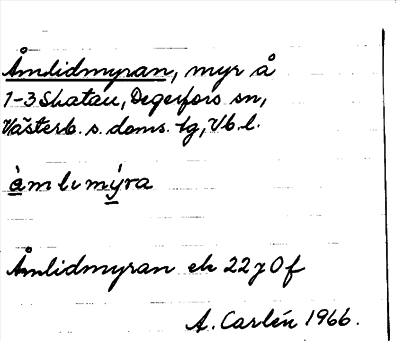 Åmlidmyran, myr å
1-3 Skatan, Degerfors sn,
Västerb. s. doms. tg, Vb l.
àm lı mýra
Åmlidmyran ek 22 7 0 f
A. Carlén 1966.